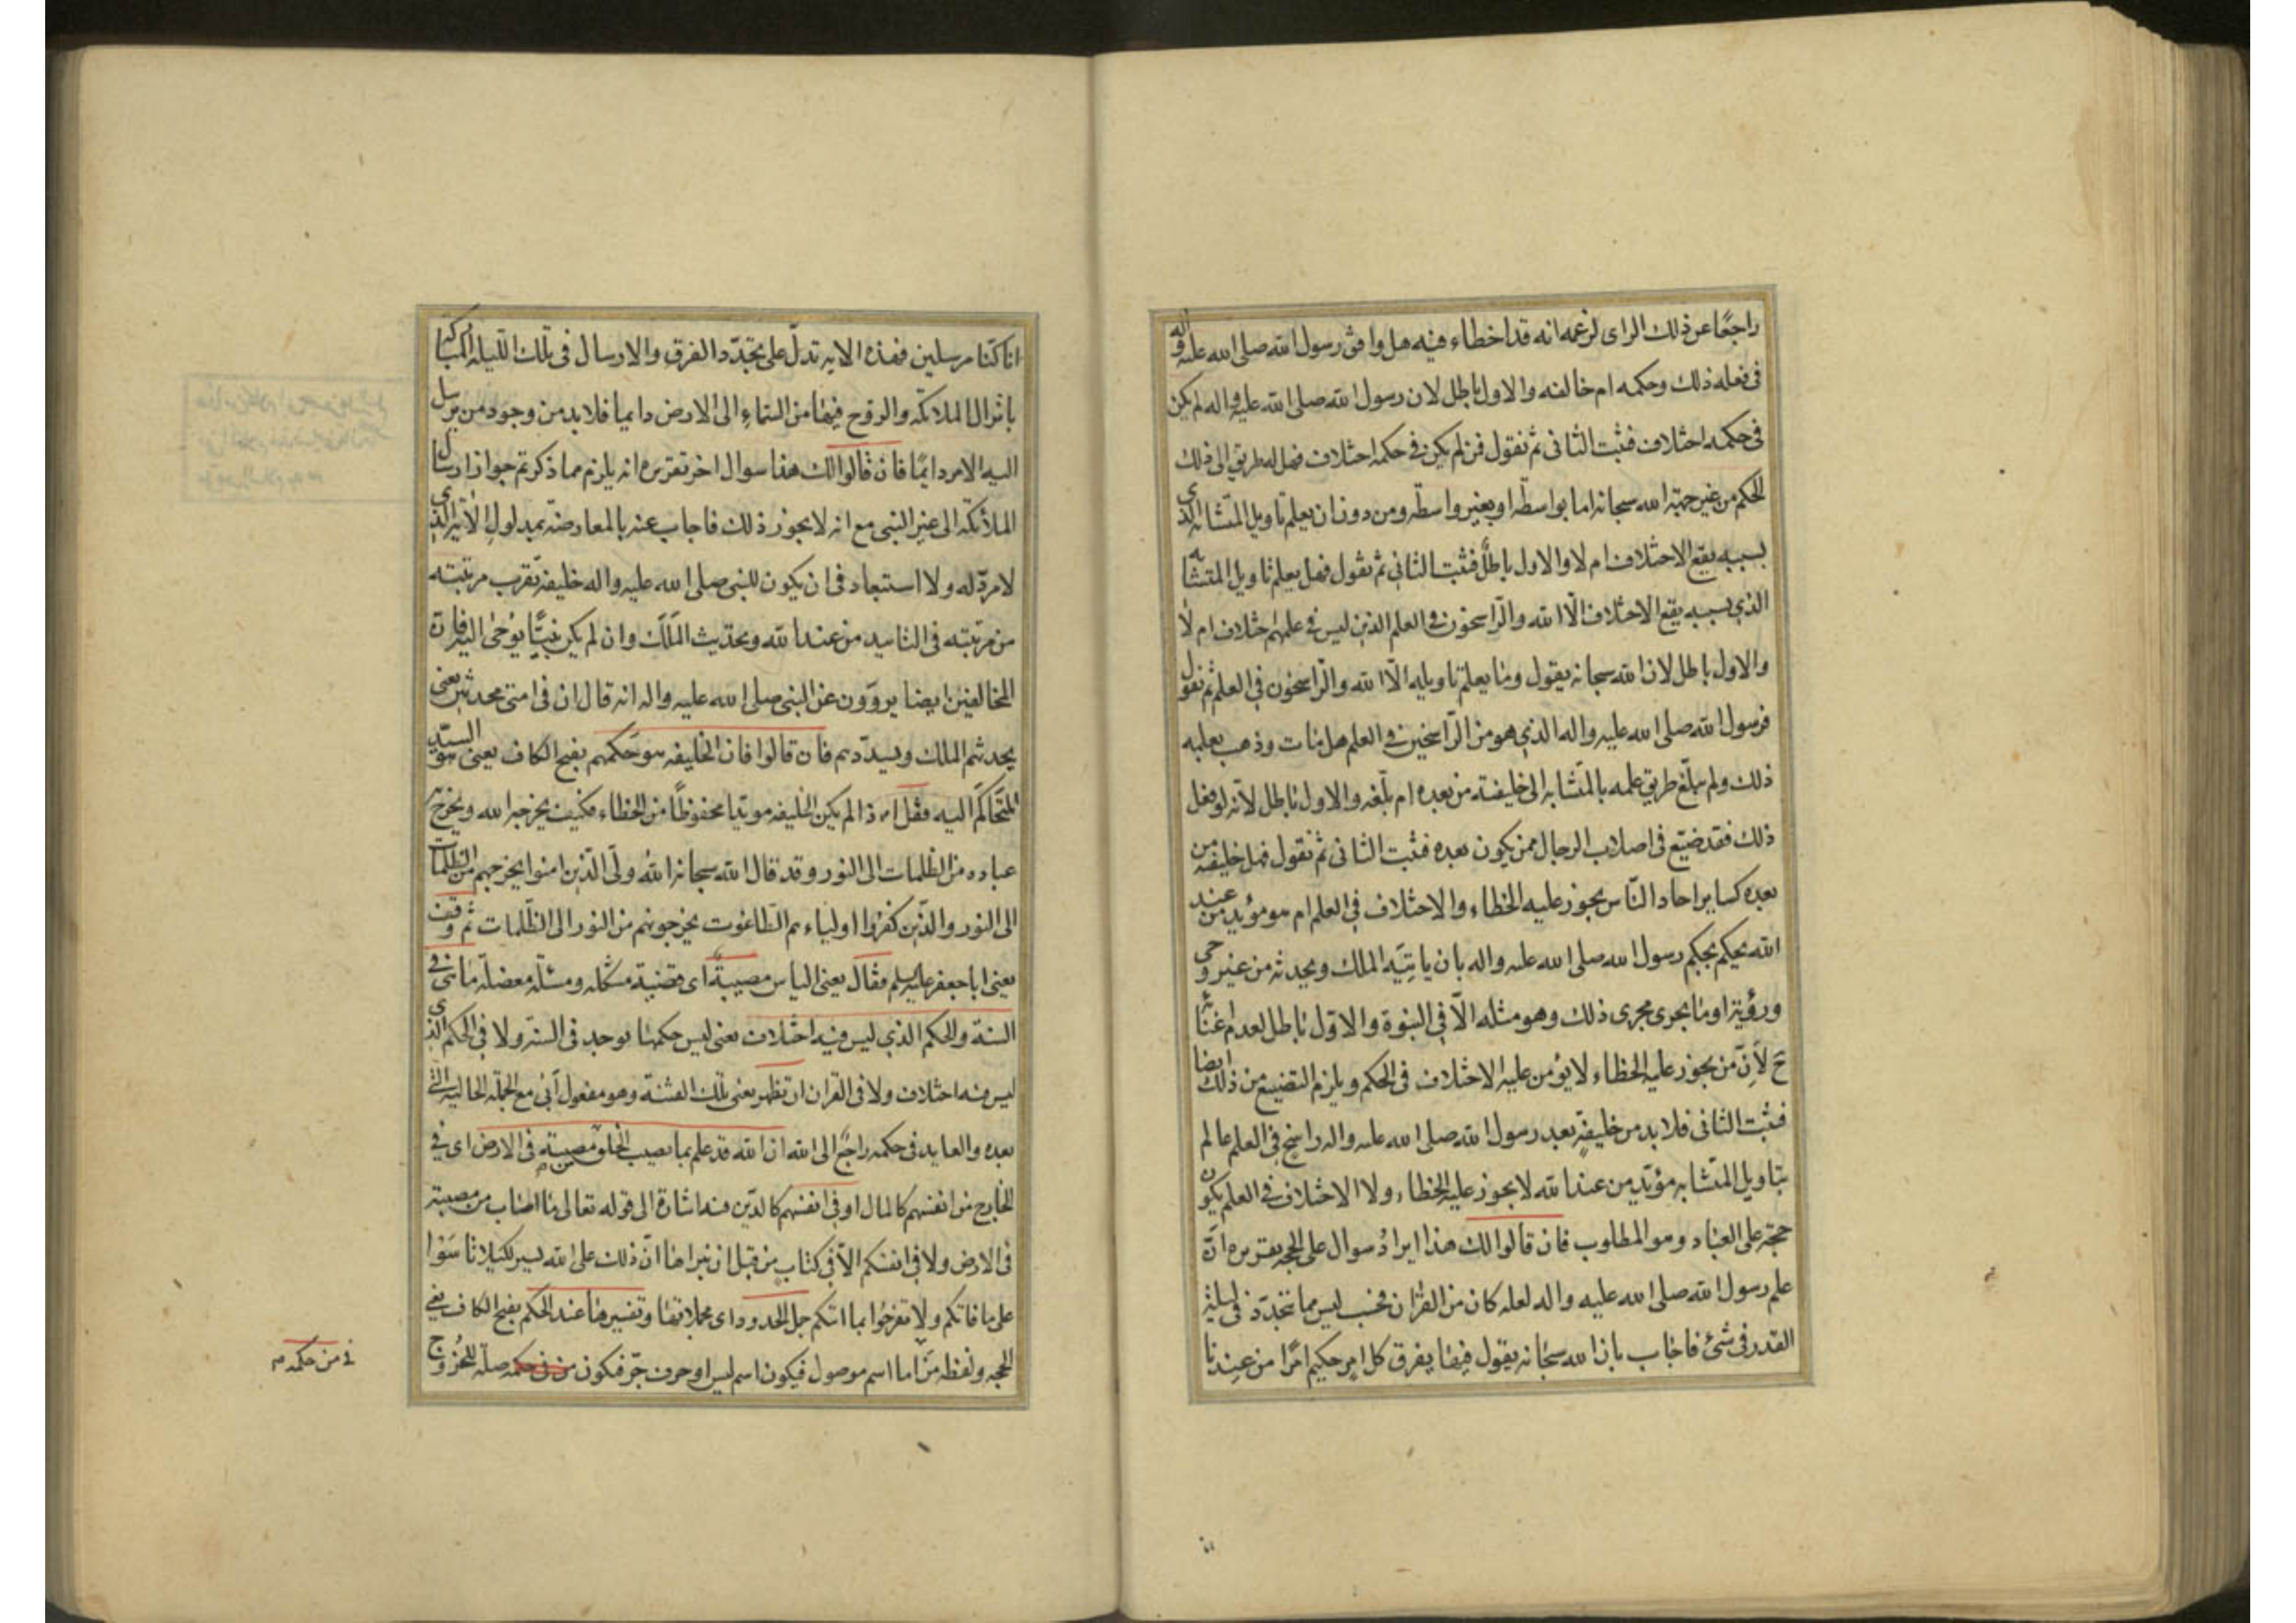 راجعًا عن ذلك الراى لزعمه انه قد اخطاء فيه هل وافق رسول الله صلى الله عليه واله
فى فعله ذلك وحكمه ام خالفه والاول باطل لان رسول الله صلى الله عليه واله لم يكن
فى حكمه اختلاف فثبت الثانى ثم نقول فمن لم يكن فى حكمه اختلاف فهل له طريق الى ذلك
الحكم من غير جهة الله سبحانه اما بواسطة او بغير واسطة ومن دون ان يعلم تاويل المتشابه الذى
بسببه يقع الاختلاف ام لا والاول باطل فثبت الثانى ثم نقول فهل يعلم تاويل المتشابه
الذي بسببه يقع الاختلاف الّا الله والرّاسخون فى العلم الذين ليس فى علمهم اختلاف ام لا
والاول باطل لان الله سبحانه يقول وما يعلم تاويله الّا الله والرّاسخون فى العلم ثم نقول
فرسول الله صلى الله عليه واله الذي هو من الرّاسخين فى العلم هل مات وذهب بعلمه
ذلك ولم يبلّغ طريق علمه بالمتشابه الى خليفته من بعده ام بلّغه والاول باطل لانّه لو فعل
ذلك فقد ضيّع فى اصلاب الرجال ممن يكون بعده فثبت الثانى ثم نقول فهل خليفته من
بعده كساير احاد النّاس يجوز عليه الخطاء والاختلاف فى العلم ام هو مؤيد من عند
الله يحكم بحكم رسول الله صلى الله عليه واله بان ياتيه الملك ويحدثه من غير وحى
ورؤية او ما يجرى مجرى ذلك وهو مثله الّا فى النبوة والاوّل باطل لعدم اغنائه
ح لأنّ من يجوز عليه الخطاء لا يؤمن عليه الاختلاف فى الحكم ويلزم التضييع من ذلك ايضا
فثبت الثانى فلا بد من خليفة بعد رسول الله صلى الله عليه واله راسخ فى العلم عالم
بتاويل المتشابه مؤيّد من عند الله لا يجوز عليه الخطاء ولا الاختلاف فى العلم يكون
حجة على العباد وهو المطلوب فان قالوا لك هذا ايرادُ سوال على الحجة تقريره انّه
علم رسول الله صلى الله عليه واله لعله كان من القران فحسب ليس مما يتجدّد فى ليلة
القدر فى شئ فاجاب بان الله سبحانه يقول فيها يفرق كل امر حكيم امرًا من عندنا
انا كنا مرسلين فهذه الايه تدلّ على تجدّد الفرق والارسال فى تلك الليله المباركة
بانزال الملائكه والروح فيها من السماء الى الارض دايما فلابد من وجود من يرسل
اليه الامر دايمًا فان قالوا لك هذا سوال اخر تقريره انه يلزم مما ذكرتم جواز ارسال
الملائكه الى غير النبى مع انه لا يجوز ذلك فاجاب عنه بالمعارضة بمدلول الاية الذى
لا مردّ له ولا استبعاد فى ان يكون للنبى صلى الله عليه واله خليفة تقرب مرتبته
من مرتبته فى التاييد من عند الله وتحديث المَلَك وان لم يكن نبيًّا يوحى اليه فان
المخالفين ايضا يروون عن النبى صلى الله عليه واله انه قال ان فى امتى محدثين يعنى
يحدثهم الملك ويسدّدهم فان قالوا فان الخليفه هو حَكمهم بفتح الكاف يعنى هو السيّد
المتحاكَم اليه فقل اذا لم يكن الخليفه مويدا محفوظًا من الخطاء فكيف يخرجه الله ويخرج به
عباده من الظلمات الى النور وقد قال الله سبحانه اللهُ ولّى الّذين امنوا يخرجهم من الظلمات
الى النور والذّين كفروا اولياءهم الطّاغوت يخرجونهم من النور الى الظّلمات ثم وقف
يعنى ابا جعفر عليه السلم فقال يعنى الياس مصيبة اى قضية مشكله ومسئلة معضلة ما هى فى
السنة والحكم الذي ليس فيه اختلاف يعنى ليس حكمها يوجد فى السنّة ولا فى الحكم الذى
ليس فيه اختلاف ولا فى القران ان تظهر يعنى تلك الفتنة وهو مفعول أبى مع الجملة الحاليه التى
بعده والعايد فى حكمه راجع الى الله ان الله قد علم بما يصيب الخلق من مصيبةٍ فى الارض اى فى
الخارج من انفسهم كالمال او فى انفسهم كالدّين فيه اشارة الى قوله تعالى ما اصاب من مصيبة
فى الارض ولا فى انفسكم الّا فى كتابٍ من قبل ان نبراها انّ ذلك على الله يسير لكيلا تاسَوا
على ما فاتكم ولا تفرحُوا بما اتيكم جمل الحدود اى مجملاتها وتفسيرها عند الحكم بفتح الكاف يعنى
الحجه ولفظه مَن اما اسم موصول فيكون اسم ليس او حرف جرّ فيكون من فى حكمه صلة للخُروج
فى من حكمه م